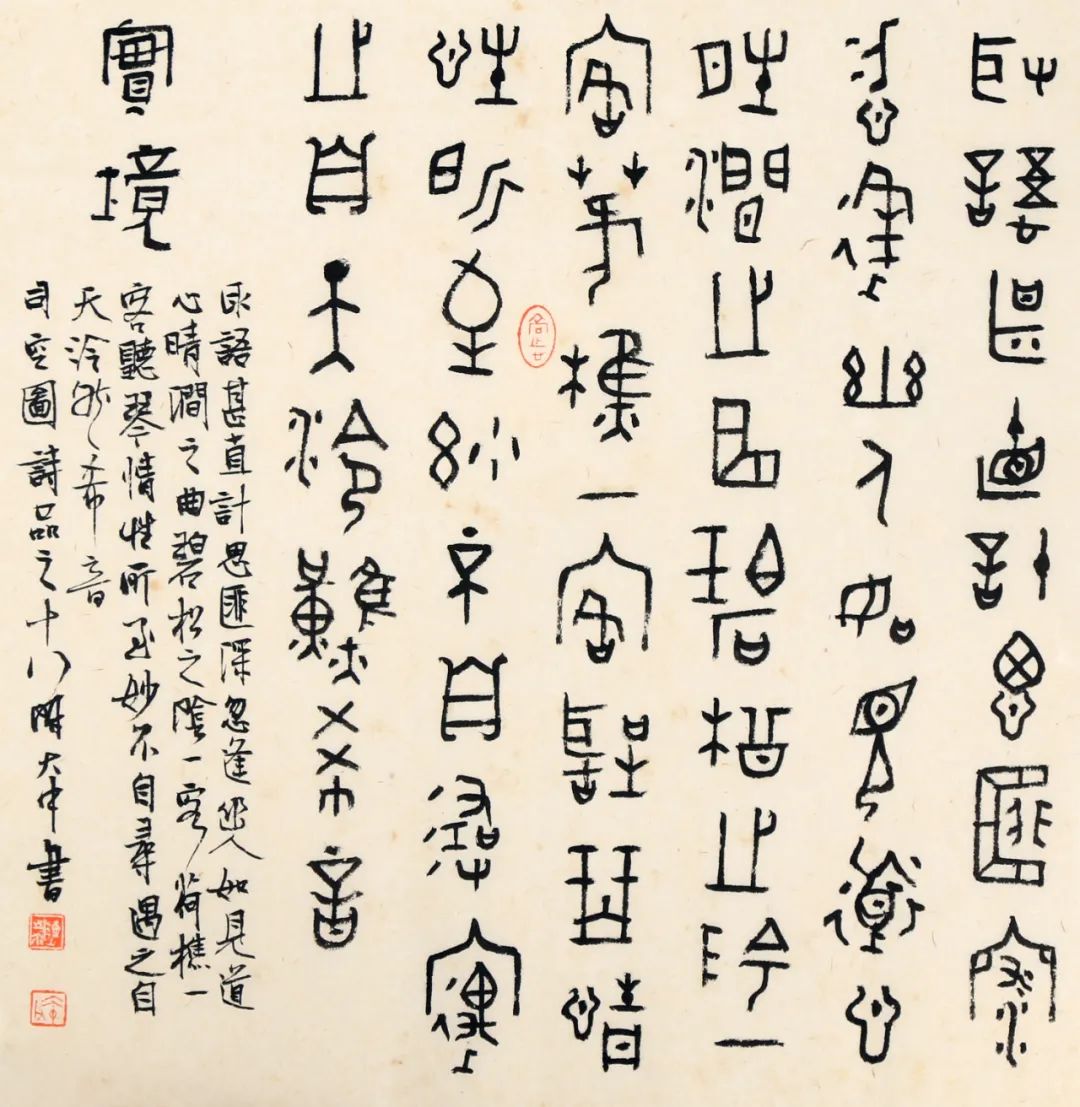 取語甚直計思匪深
忽逢幽人如見道心
晴澗之曲碧松之陰一
客荷樵一客聽琴情
性所至妙不自尋遇
之自天泠然希音
實境
取語甚直計思匪深忽逢幽人如見道
心晴澗之曲碧松之陰一客荷樵一
客聽琴情性所至妙不自尋遇之自
天泠然希音
司空圖詩品之十八陳大中書